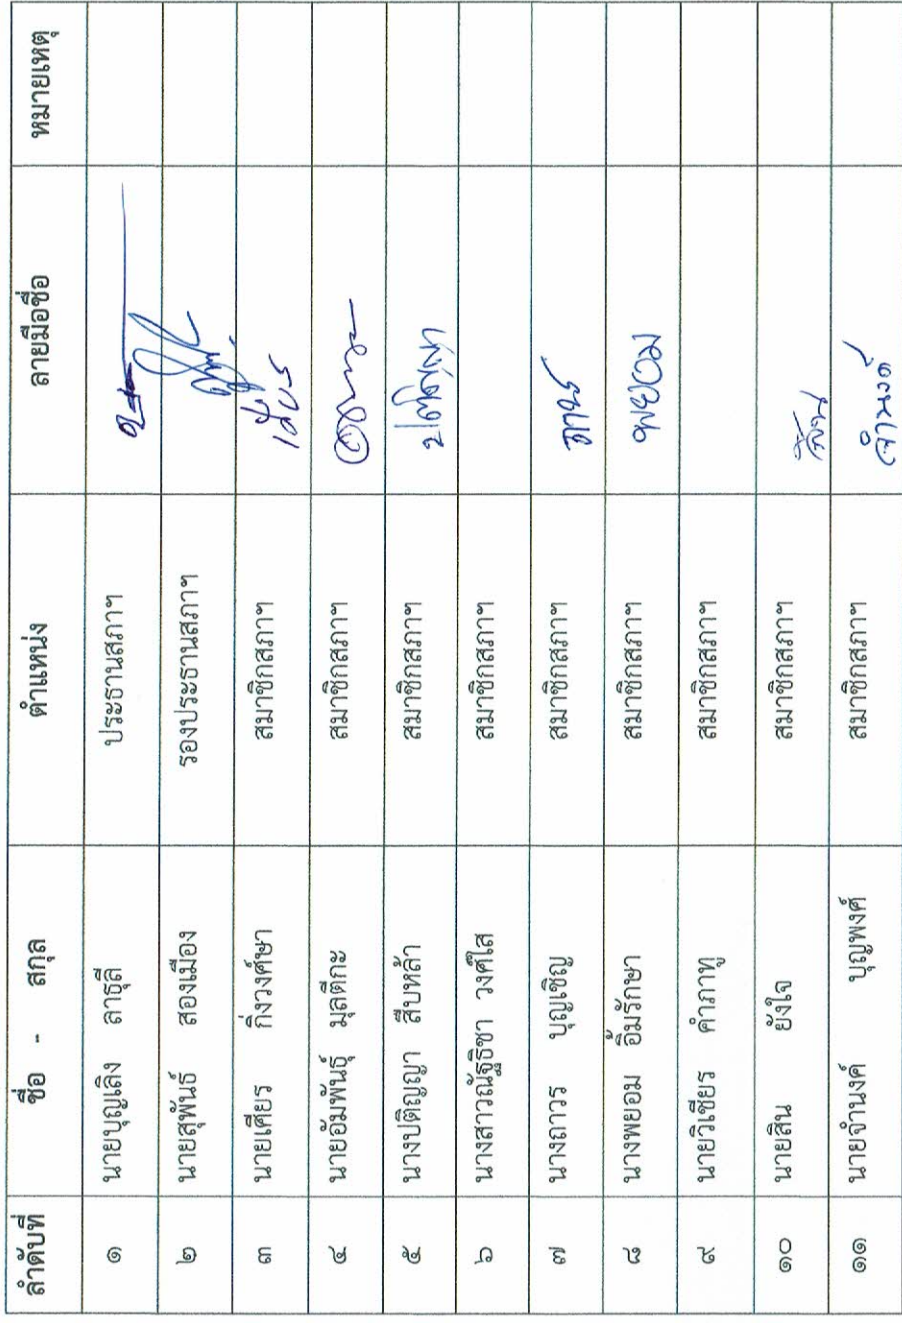 ลำดับที่ ชื่อ - สกุล ตำแหน่ง ลายมือชื่อ หมายเหตุ
๑ นายบุญเลิง ลาธุลี ประธานสภาฯ
๒ นายสุพันธ์ สองเมือง รองประธานสภาฯ
๓ นายเศียร กิ่งวงศ์ษา สมาชิกสภาฯ
๔ นายอัมพันธุ์ มุลตีกะ สมาชิกสภาฯ
๕ นางปติญญา สืบหล้า สมาชิกสภาฯ ปติญญา
๖ นางสาวณัฐธิชา วงศ์ใส สมาชิกสภาฯ
๗ นางถาวร บุญเชิญ สมาชิกสภาฯ
๘ นางพยอม อิ้มรักษา สมาชิกสภาฯ พยอม
๙ นายวิเชียร คำภาทู สมาชิกสภาฯ
๑๐ นายสิน ยังใจ สมาชิกสภาฯ
๑๑ นายจำนงค์ บุญพงศ์ สมาชิกสภาฯ จำนงค์